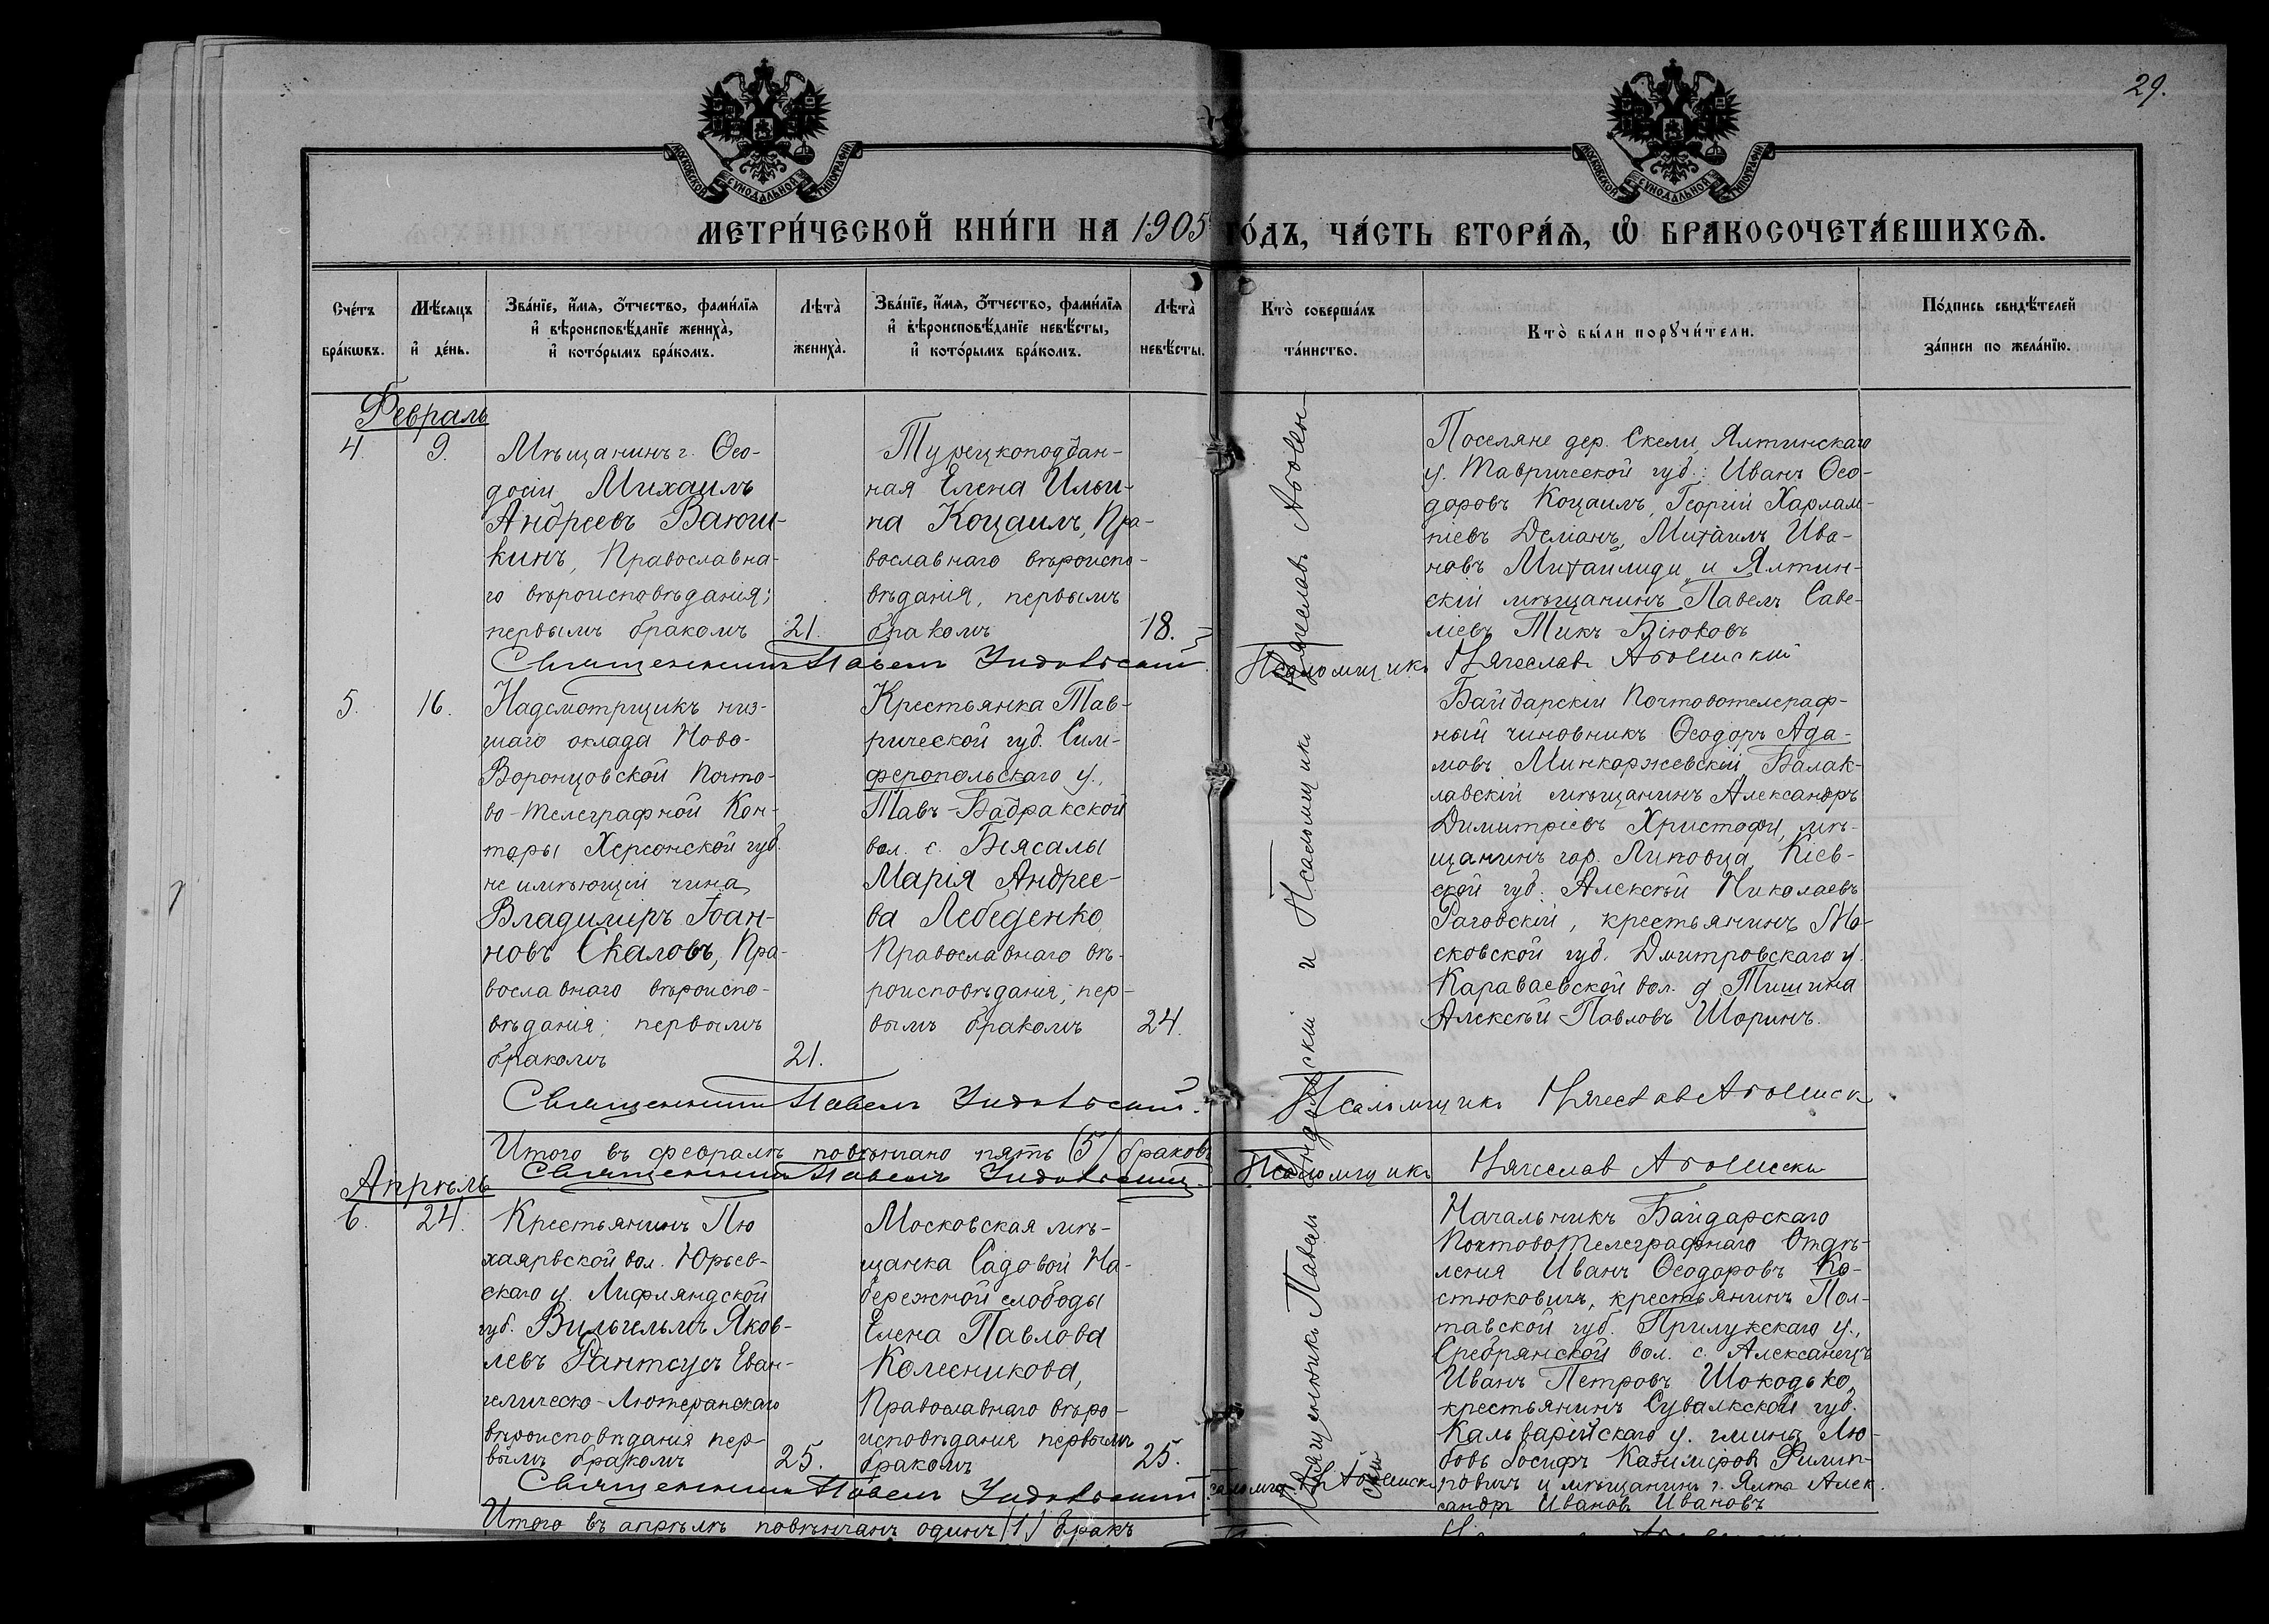 29.
МОСКОВСКОЙ СѴНОДАЛЬНОЙ ТИПОГРАФІИ
МОСКОВСКОЙ СѴНОДАЛЬНОЙ ТИПОГРАФІИ
МЕТРИ́ЧЕСКОЙ КНИ́ГИ НА 1905 ГО́ДЪ, ЧА́СТЬ ВТОРА́Ѧ, Ѽ БРАКОСОЧЕТА́ВШИХСѦ.
Сче́тъ
бра́кѡвъ.
Мѣ́сяцъ
и҆ де́нь.
Зва́нїе, и҆́мѧ, ѻ҆́тчество, фами́лїѧ
и҆ вѣроисповѣ́данїе жениха̀,
и҆ кото́рымъ бра́комъ.
Лѣта̀
жениха̀.
Зва́нїе, и҆́мѧ, ѻ҆́тчество, фами́лїѧ
и҆ вѣроисповѣ́данїе невѣ́сты,
и҆ кото́рымъ бра́комъ.
Лѣта̀
невѣ́сты.
Кто̀ соверша́лъ
та́инство.
Кто̀ бы́ли порꙋчи́тели.
По́дпись свидѣ́телей
за́писи по жела́нїю.
Февраль
4. 9.
Мѣщанинъ г. Ѳео-
досіи Михаилъ
Андреевъ Ваюши-
кинъ, Православна-
го вѣроисповѣданія;
первымъ бракомъ 21.
Турецкоподдан-
ная Елена Ильи-
на Коцаилъ, Пра-
вославнаго вѣроиспо-
вѣданія, первымъ
бракомъ 18.
Поселяне дер. Скели, Ялтинскаго
у. Таврической губ.: Иванъ Ѳео-
доровъ Коцаилъ, Георгій Харлам-
піевъ Деміанъ, Михаилъ Ива-
новъ Михаилиди и Ялтин-
скій мѣщанинъ Павелъ Саве-
ліевъ Тикъ-Біюковъ
Священникъ Павелъ
Псаломщикъ Вячеславъ
5. 16.
Надсмотрщикъ низ-
шаго оклада Ново-
Воронцовской Почто-
во-Телеграфной Кон-
торы Херсонской губ.
не имѣющій чина,
Владиміръ Іоан-
новъ Скаловъ, Пра-
вославнаго вѣроиспо-
вѣданія; первымъ
бракомъ 21.
Крестьянка Тав-
рической губ. Сим-
феропольскаго у.,
Тавъ-Бадракской
вол. с. Біясалы
Марія Андрее-
ва Лебеденко,
Православнаго вѣ-
роисповѣданія; пер-
вымъ бракомъ 24.
Байдарскій Почтовотелеграф-
ный чиновникъ Ѳеодоръ Ада-
мовъ Минкоржевскій, Балак-
лавскій мѣщанинъ Александръ
Димитріевъ Христофи, мѣ-
щанинъ гор. Липовца, Кіев-
ской губ. Алексѣй Николаевъ
Раговскій, крестьянинъ Мо-
сковской губ. Дмитровскаго у.
Караваевской вол. д. Тишина
Алексѣй Павловъ Шоринъ.
Священникъ Павелъ
Псаломщикъ Вячеславъ
Итого въ февралѣ повѣнчано пять (5) браковъ
Священникъ Павелъ
Псаломщикъ Вячеславъ
Священникъ Павелъ и Псаломщикъ Вячеславъ
Апрѣль
6. 24.
Крестьянинъ Пю
хаярвской вол. Юрьев-
скаго у. Лифляндской
губ. Вильгельмъ Яков-
левъ Рантсусъ Еван-
гелическо-Лютеранскаго
вѣроисповѣданія пер-
вымъ бракомъ 25.
Московская мѣ-
щанка Садовой На-
бережной слободы
Елена Павлова
Колесникова,
Православнаго вѣро-
исповѣданія первымъ
бракомъ 25.
Начальникъ Байдарскаго
ПочтовоТелеграфнаго Отдѣ-
ленія Иванъ Ѳеодоровъ Ко-
стюковичъ, крестьянинъ Пол-
тавской губ. Прилукскаго у.,
Сребрянской вол. с. Алексанецъ
Иванъ Петровъ Шокодько,
крестьянинъ Сувалкской губ.
Кальварійскаго у. гмины Лю-
бовь Іосифъ Казиміровъ Филип-
повичъ и мѣщанинъ г. Ялта Алек-
сандръ Ивановъ Ивановъ
Священникъ Павелъ
Итого въ апрѣлѣ повѣнчанъ одинъ (1) бракъ